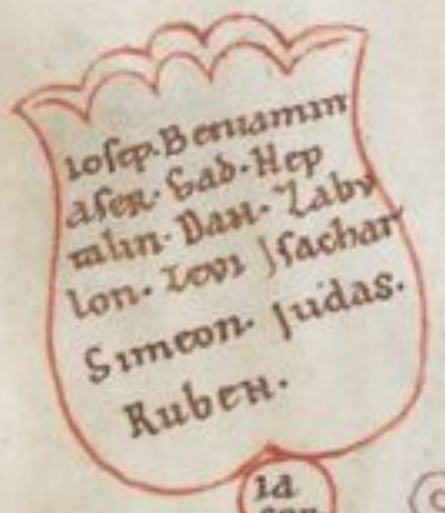 Iosep. Beniamin
aser. Gad. Nep
talin. Dan. Zabu
lon. Levi Isachar
Simeon. Judas.
Ruben.
Ia